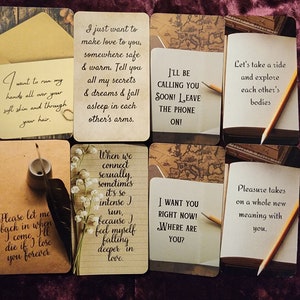 I want to run my
hands all over your
soft skin and through
your hair.
I just want to
make love to you,
somewhere safe
& warm. Tell you
all my secrets
& dreams & fall
asleep in each
other's arms.
I'll be
calling you
soon! Leave
the phone
on!
Let's take a ride
and explore
each other's
bodies
Please let me
back in when
I come, I'll
die if I lose
you forever
When we
connect
sexually,
sometimes
it's so
intense I
run,
because I
feel myself
falling
deeper in
love.
I want you
right now!
Where are
you?
Pleasure takes
on a whole new
meaning with
you.